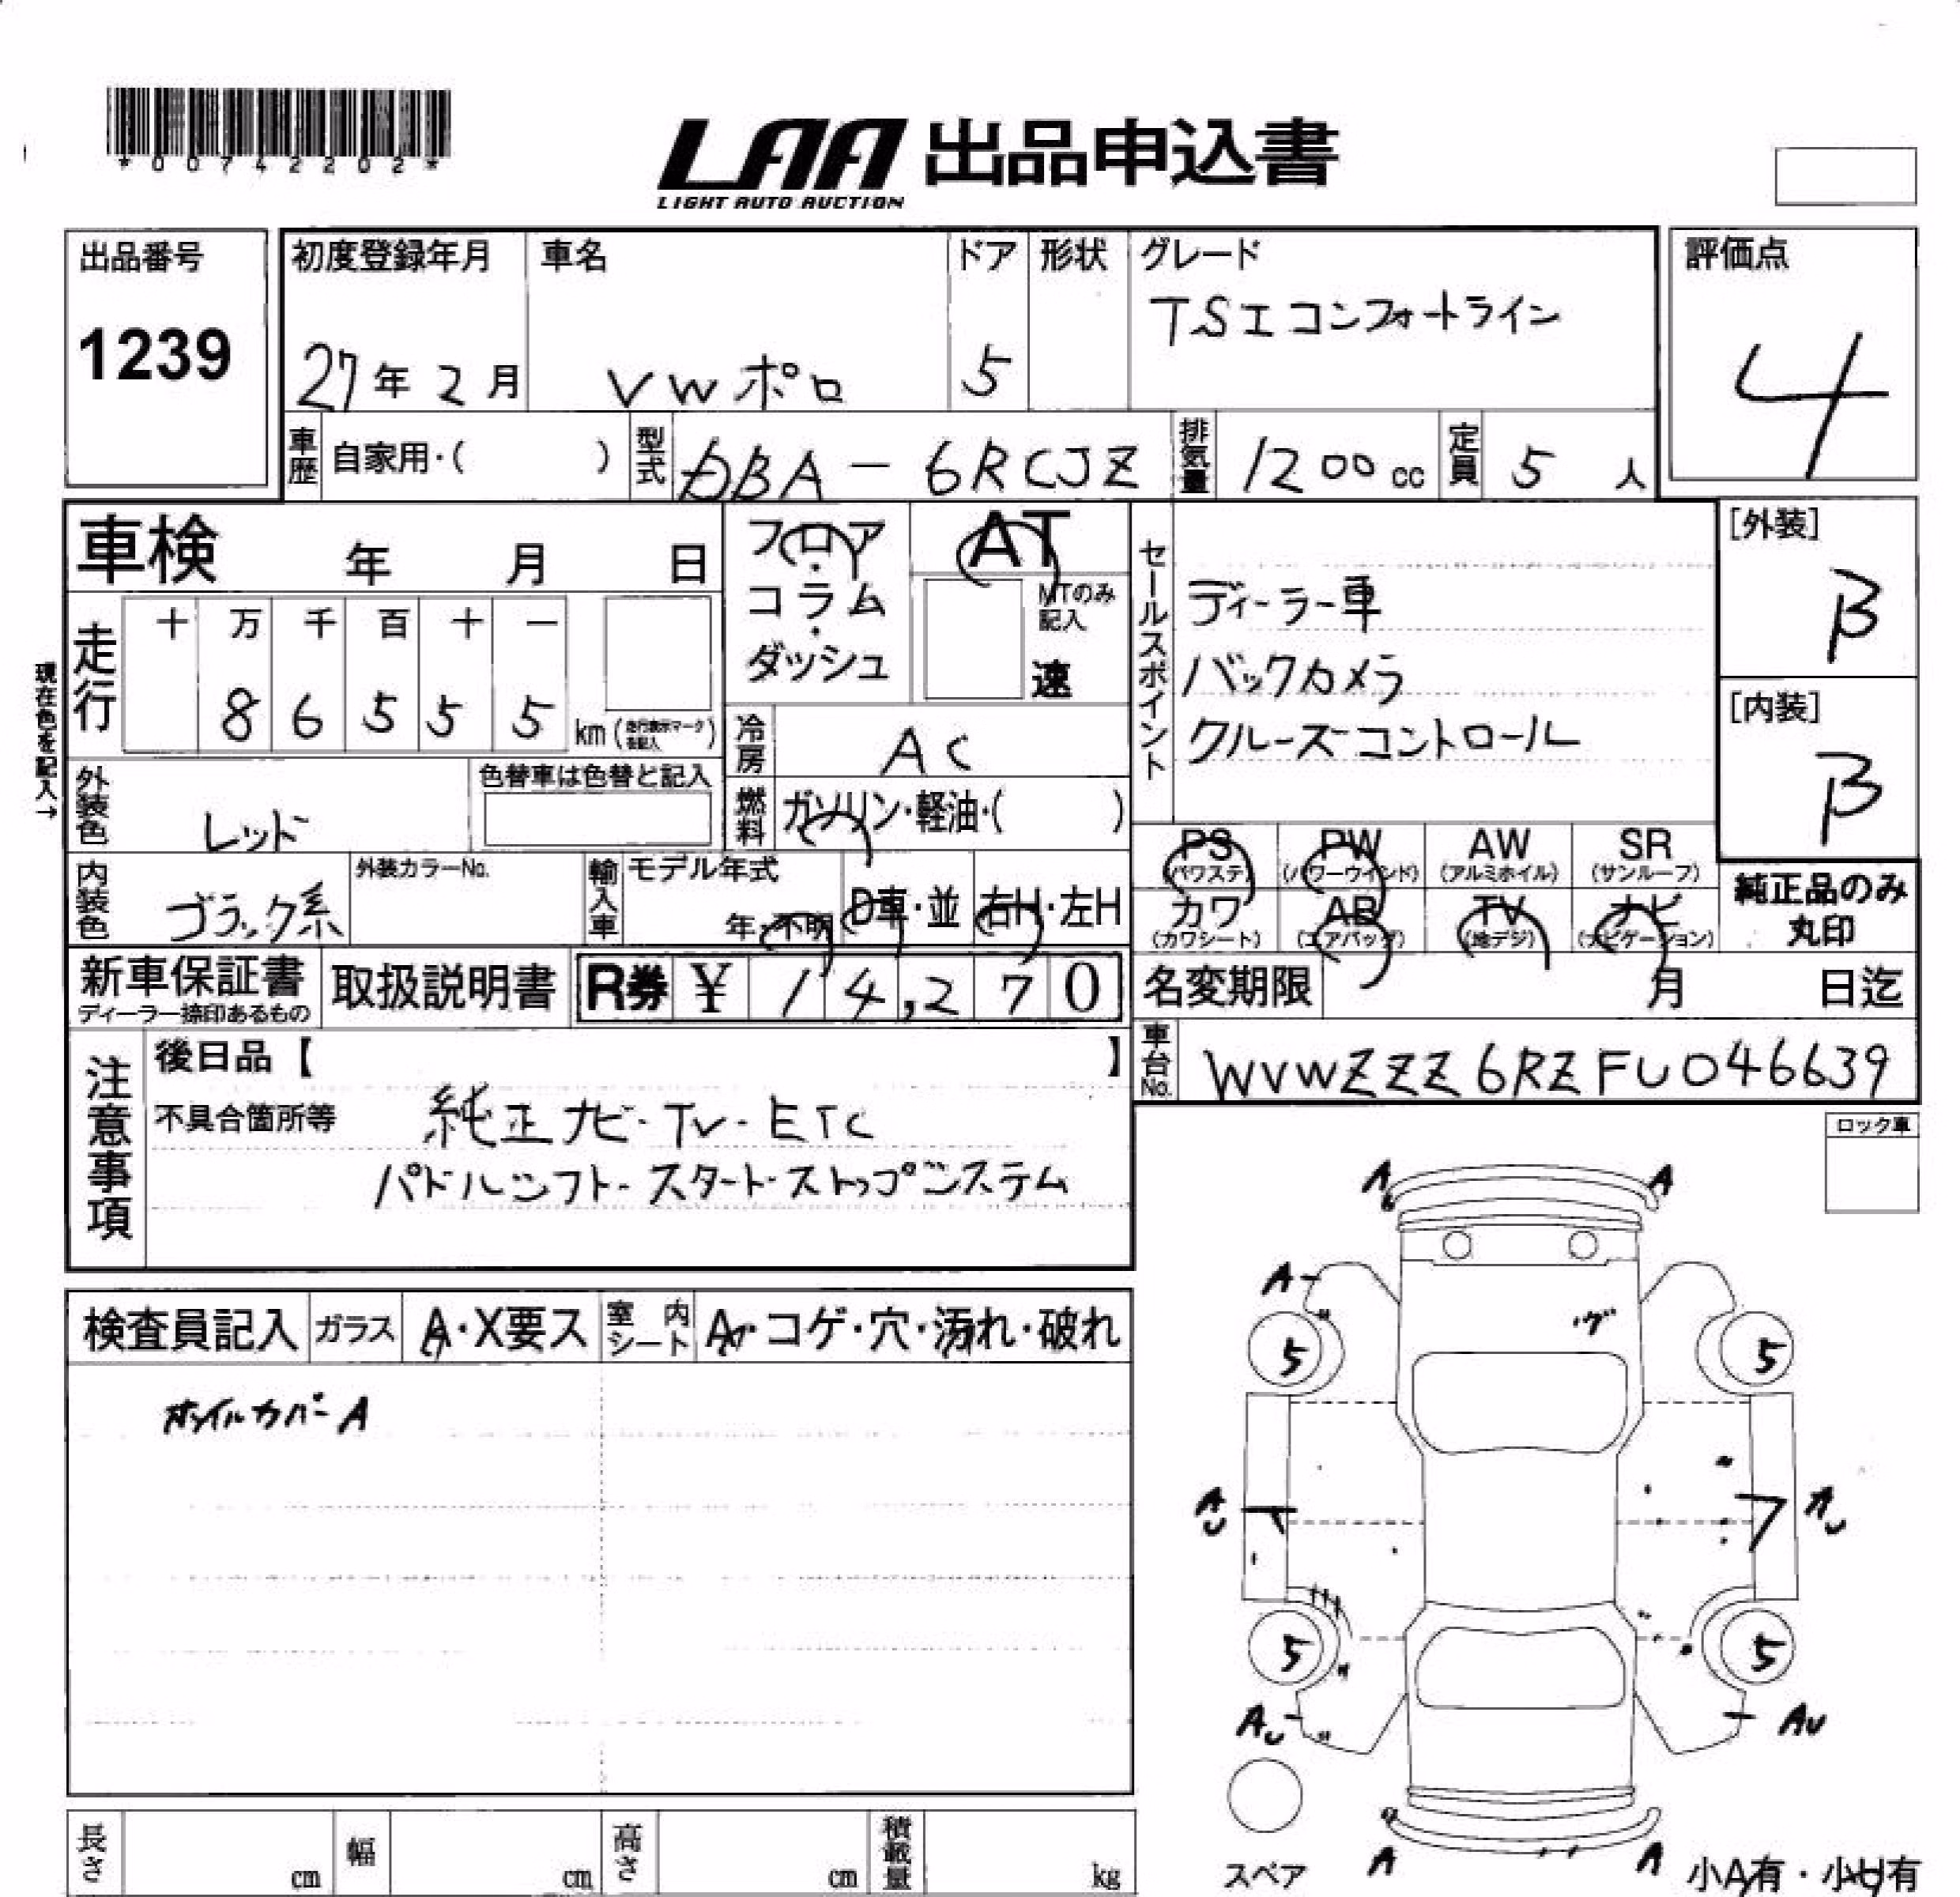 *00742202*
LAA 出品申込書
LIGHT AUTO AUCTION
出品番号
1239
初度登録年月
27年2月
車名
VWポロ
ドア
5
形状
グレード
TSIコンフォートライン
評価点
4
車歴 自家用・( )
型式 DBA-6RCJZ
排気量 1200cc
定員 5人
車検 年 月 日
フロア・コラム・ダッシュ
AT
MTのみ記入
速
セールスポイント
ディーラー車
バックカメラ
クルーズコントロール
[外装]
β
[内装]
β
現在色を記入→
走行
十 万 千 百 十 一
8 6 5 5 5 km (走行表示マークを記入)
冷房 AC
外装色 レッド
色替車は色替と記入
燃料 ガソリン・軽油・( )
PS (パワステ)
PW (パワーウインド)
AW (アルミホイル)
SR (サンルーフ)
内装色 ブラック系
外装カラーNo.
輸入車
モデル年式
年・不明
D車・並
右H・左H
カワ (カワシート)
AB (エアバッグ)
TV (地デジ)
ナビ (ナビゲーション)
純正品のみ丸印
新車保証書
ディーラー捺印あるもの
取扱説明書
R券 ¥ 14,270
名変期限 月 日迄
車台No. WVWZZZ6RZFU046639
注意事項
後日品【 】
不具合箇所等
純正ナビ・TV・ETC
パドルシフト・スタート・ストップシステム
ロック車
検査員記入
ガラス A・X要ス
室内シート A・コゲ・穴・汚れ・破れ
ホイルカバーA
A A
A
グ
5 5
AU AU
5 5
AU AU
スペア
A A
小A有・小U有
長さ cm
幅 cm
高さ cm
積載量 kg